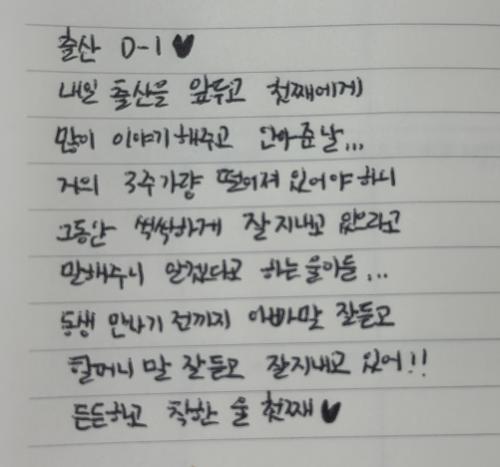 출산 D-1 ♥
내일 출산을 앞두고 첫째에게
많이 이야기해주고 안아준날...
거의 3주가량 떨어져있어야하니
그동안 씩씩하게 잘지내고 있으라고
말해주니 알겠다고 하는울아들...
동생 만나기전까지 아빠말 잘듣고
할머니말잘듣고 잘지내고있어!!
든든하고 착한 울 첫째♥